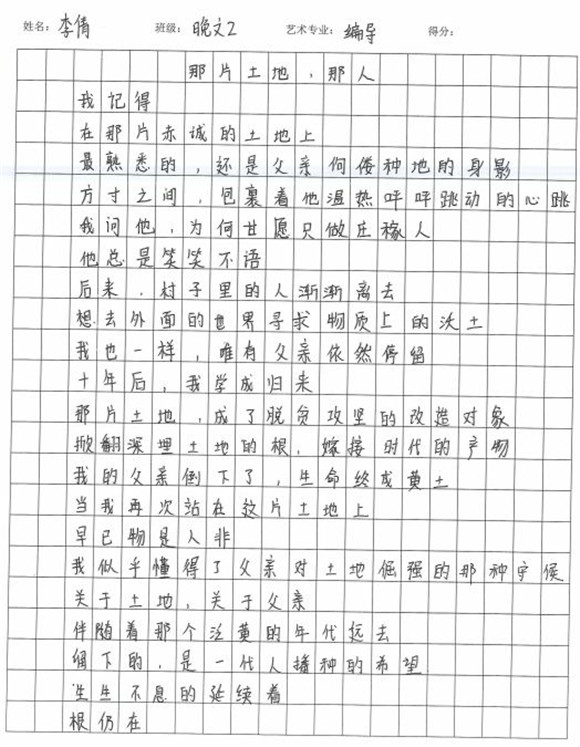 姓名：李倩 班级：晚文2 艺术专业：编导 得分：
那片土地，那人
我记得
在那片赤诚的土地上
最熟悉的，还是父亲佝偻种地的身影
方寸之间，包裹着他温热呯呯跳动的心跳
我问他，为何甘愿只做庄稼人
他总是笑笑不语
后来，村子里的人渐渐离去
想去外面的世界寻求物质上的沃土
我也一样，唯有父亲依然停留
十年后，我学成归来
那片土地，成了脱贫攻坚的改造对象
掀翻深埋土地的根，嫁接时代的产物
我的父亲倒下了，生命终成黄土
当我再次站在这片土地上
早已物是人非
我似乎懂得了父亲对土地倔强的那种守候
关于土地，关于父亲
伴随着那个泛黄的年代远去
留下的，是一代人播种的希望
生生不息的延续着
根仍在